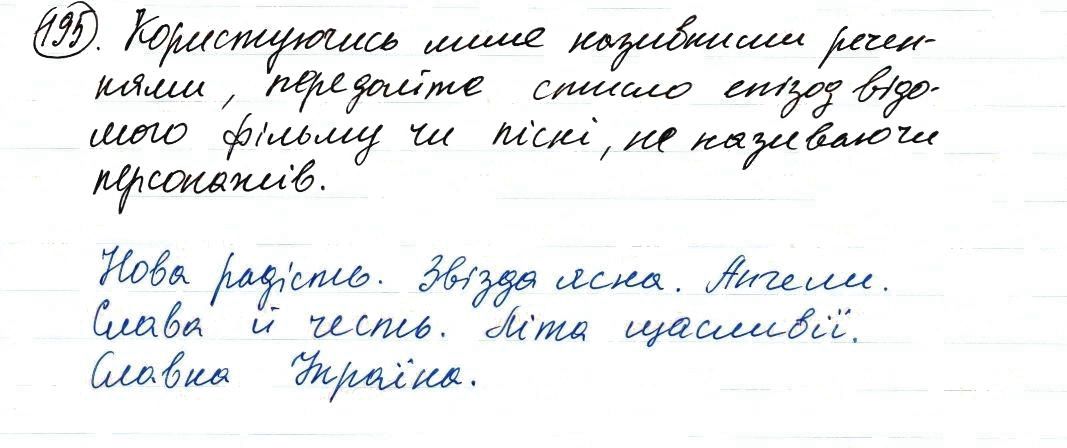 195. Користуючись лише називними речен-
нями, передайте стисло епізод відо-
мого фільму чи пісні, не називаючи
персонажів.
Нова радість. Звізда ясна. Ангели.
Слава й честь. Літа щасливії.
Славна Україна.